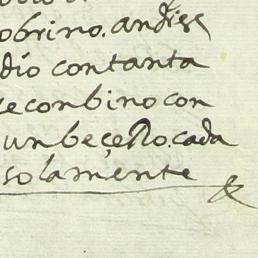 obrino. andise
dio contanta
se conbino con
un beçerro. cada
solamente